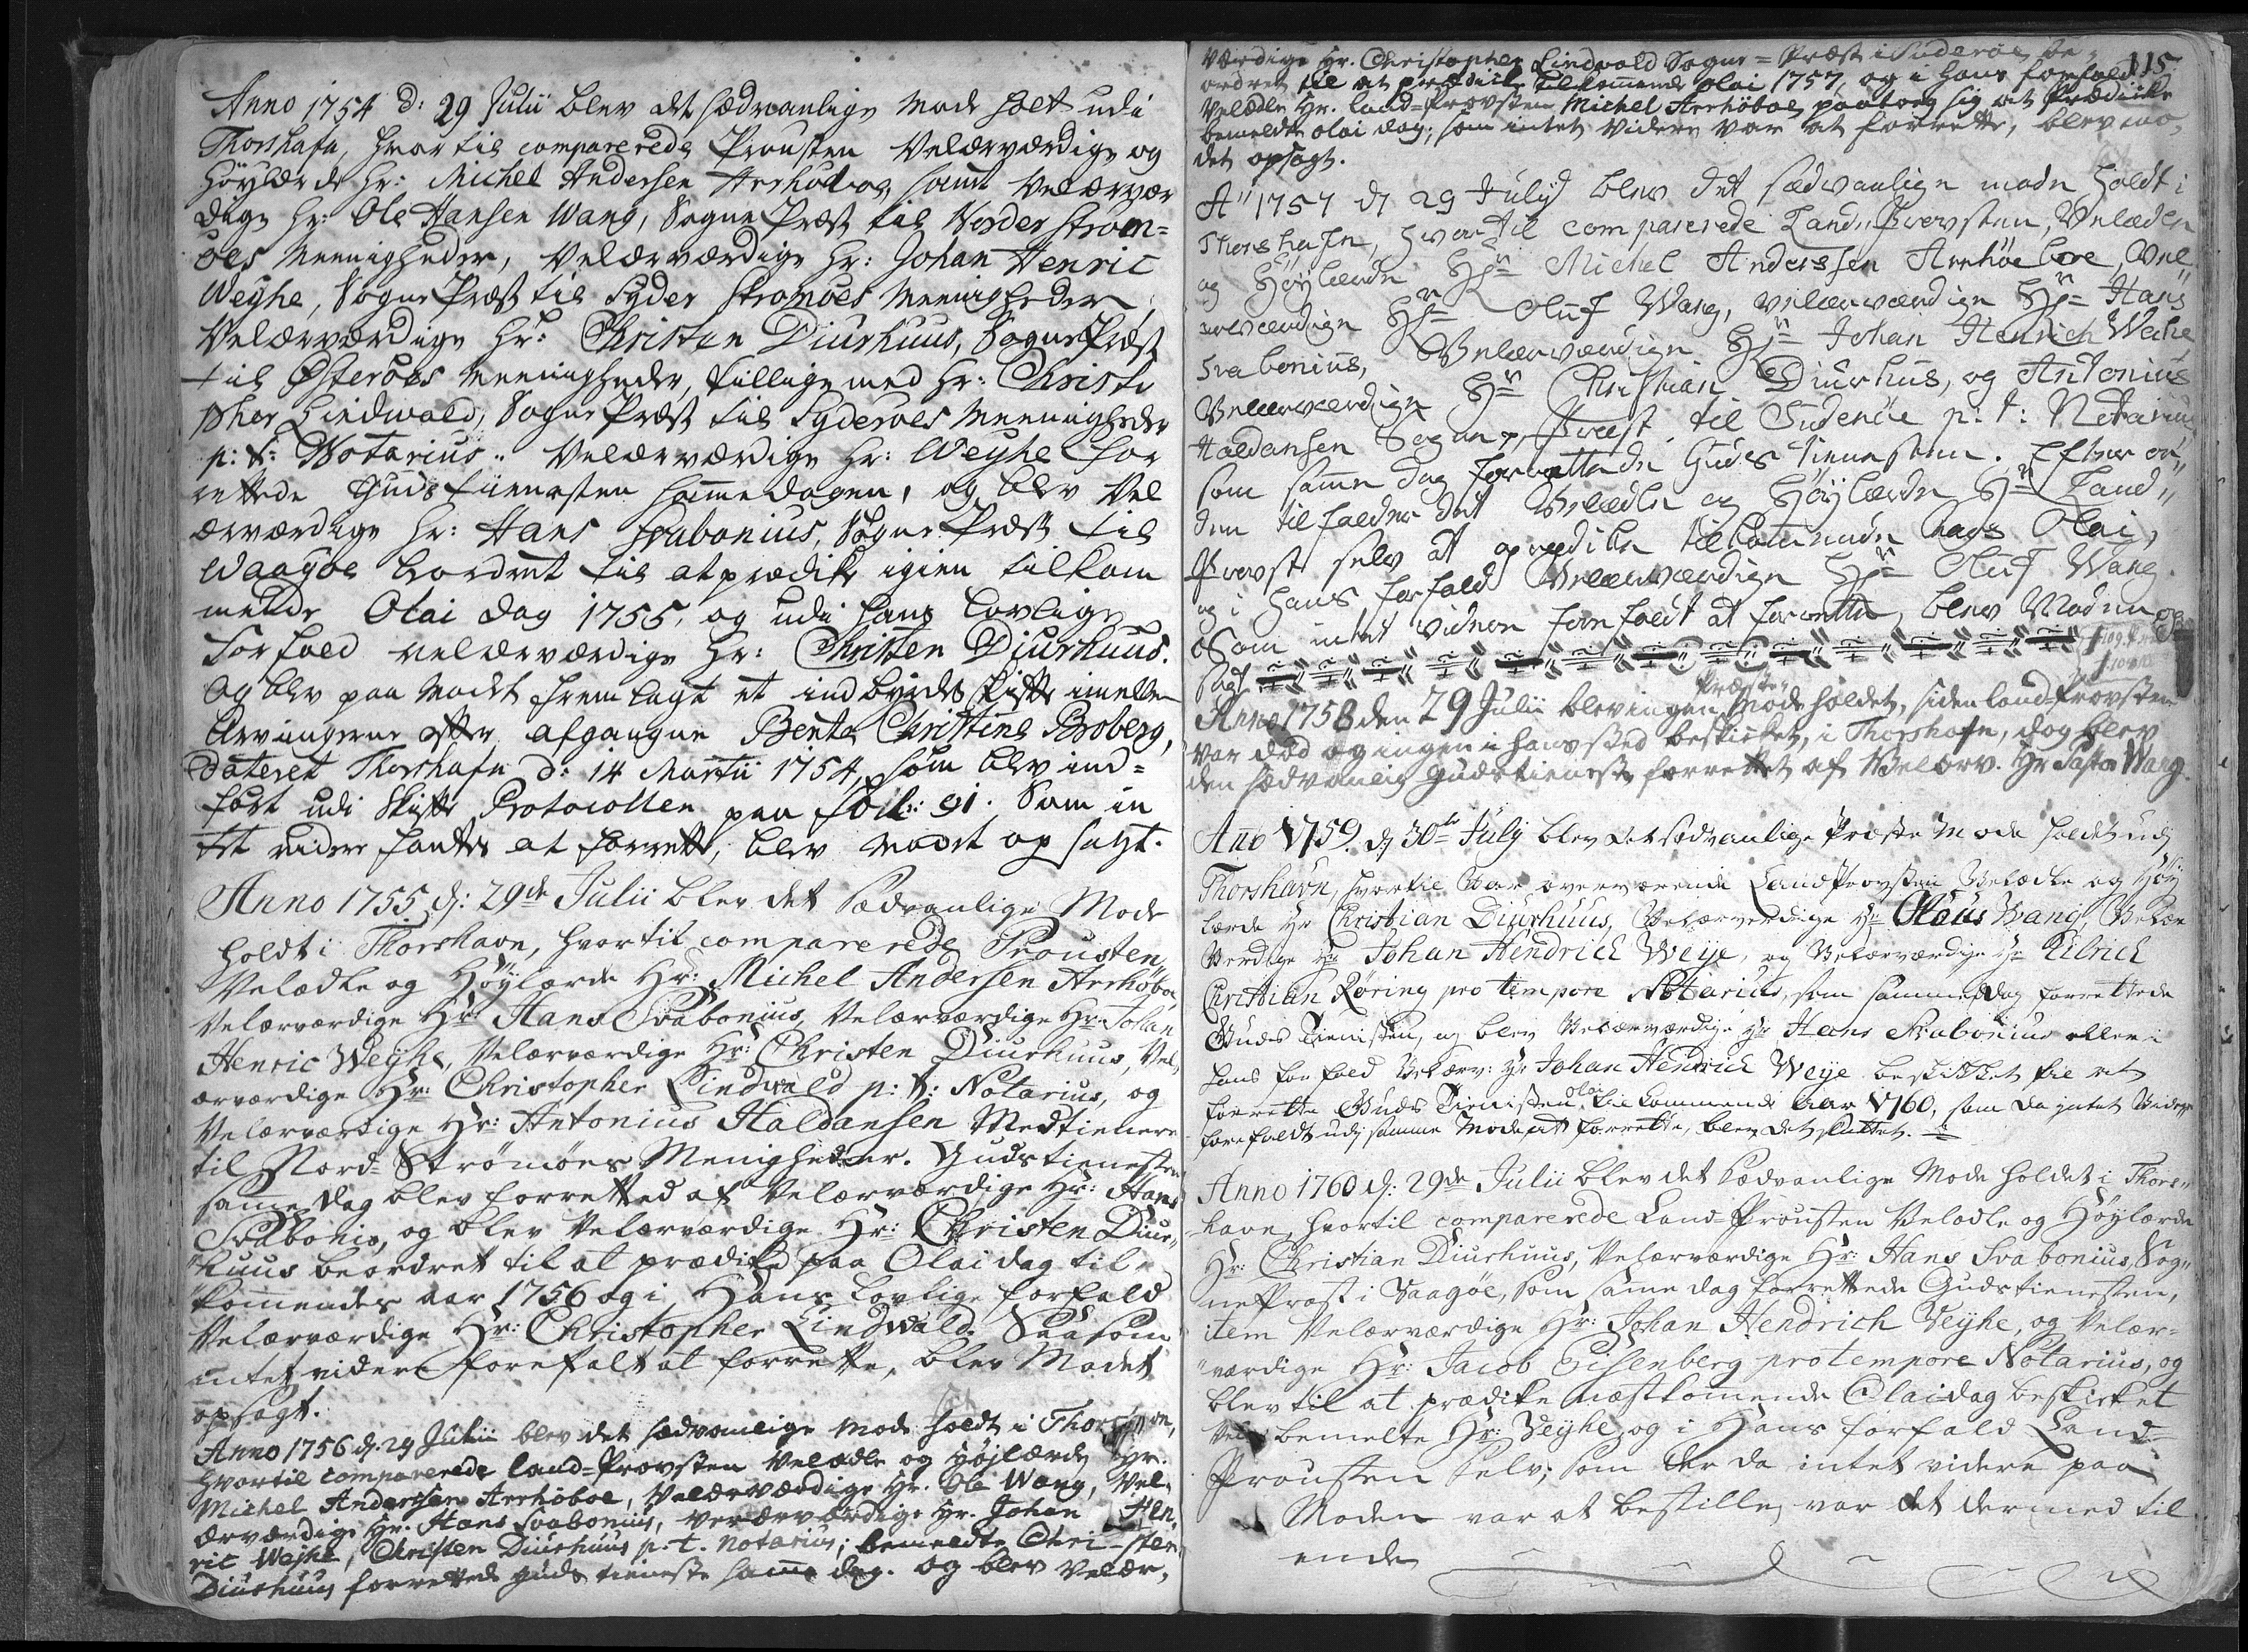 Anno 1754 d: 29 Julii blev det sædvanlige Mode holt udi
Thorshafn, hvortil comparerede Prousten Velærværdige og
Høylærde Hr: Michel Andersen Arrhöboe, samt Velærvær
dige Hr: Ole Hansen Wang, Sogne Præst til Norder Strøm=
öes Meenigheder, Velærværdige Hr: Johan Henric
Weyhe, Sogne Præst til Syder Stromöes Meenigheder,
Velærværdige Hr: Christen Diurhuus, Sogne Præst
til Østeröes Meenigheder, tillige med Hr: Christo
pher Lindwald, Sogne Præst til Syderoes Meenigheder
p: t: Notarius. Velærværdige Hr: Weyhe for
rettede Guds tienesten samme dagen, og blev Vel
ærværdige Hr: Hans Svabonius, Sogne Præst til
Waagöe beordret til at prædike igien tilkom
mende Olai dag 1755, og udi hans lovlige
Forfald velærværdige Hr: Christen Diurhuus.
Og blev paa Modet frem lagt et indbyrdes Skifte imellem
Arvingerne efter afgangne Bente Christine Broberg,
dateret Thorshafn d: 14 Martii 1754, som blev ind=
fört udi Skifte Protocollen paa fol: 91. Som in
tet videre fantes at forrette, blev Modet op sagt.
Anno 1755 d: 29de Julii blev det Sædvanlige Mode
holdt i Thorshavn, hvortil comparerede Prousten
Velædle og Høylærde Hr: Michel Andersen Arrhöboe,
Velærværdige Hr: Hans Svabonius, Velærværdige Hr: Johan
Henric Weyhe, Velærværdige Hr: Christen Diurhuus, Vel,
ærværdige Hr: Christopher Lindwald p: t: Notarius, og
Velærværdige Hr: Antonius Haldansen Medtienere
til Nord-Strømöes Menigheder. Gudstienesten
samme dag blev forretted af Velærværdige Hr: Hans
Svabonio, og blev Velærværdige Hr: Christen Diur"
huus beordret til at prædike paa Olai dag til-
kommendes aar 1756 og i Hans Lovlige forfald
Velærværdige Hr: Christopher Lindwald. Saasom
intet videre forefalt at forrette, blev Modet
opsagt.
Anno 1756 d. 29 Julii blev det sædvanlige Mode holdt i Thorshavn,
hvortil comparerede land-Provsten Velædle og Höjlærde Hr.
Michel Anderssen Arrhöboe, Velærværdige Hr. Ole Wang, Vel-
ærværdige Hr. Hans Svabonius, Velærværdige Hr. Johan Hen,
ric Wejhe, Christen Diurhuus p. t. notarius; bemeldte Chri-sten
Diurhuus forrettede guds tieneste samme dag. og blev Velær,
115
værdige Hr. Christopher Lindvold Sogne=Præst i Suderöe be-
ordret til at prædicke tilkommende olai 1757, og i hans forfald
Velædle Hr. land-Provsten Michel Arrhöboe paatog sig at Prædicke
bemeldte olai dag; som intet videre var at forrette, blev mo,
det opsagt.
Ao 1757 d 29 Julij blev det sædvanlige mode holdt i
Thorshafn, hvortil comparerede Land Provsten, Velædle
og Höylærde Hr Michel Anderssen Arrhöeboe, Vel"
ærværdige Hr Oluf Wang, velærværdige Hr Hans
Svabonius, Velærværdige Hr Johan Henrich Weihe,
Velærværdige Hr Christian Diurhus, og Antonius
Haldansen Sogne Præst til Suderöe p: t: Notarius
som samme dag forrettede Guds tienesten. Efter or"
den tilfalder det Velædle og Höylærde Hr Land"
Provst selv at prædike tilkommende Aars Olai,
og i hans forfald Velærværdige Hr Oluf Wang.
Som intet videre forefaldt at forrette, blev Moden op
sagt
Anno 1758 den 29 Julii blev ingen Præste Mode holdet, siden land-Provsten
var död og ingen i hans sted beskicket, i Thorshafn, dog blev
den sædvanlig Gudstieneste forrettet af Velærv. Hr Pastor Wang.
Ano 1759. d 30te July blev det sædvanlige Præste Mode holdet udj
Thorshavn, hvortil var overværende Land Provsten Velædle og Höy
lærde Hr Christian Diurhuus, Velærværdige Hr Olaus Wang, Velær
Verdige Hr Johan Hendrich Weije, og Velærværdige Hr Ulrich
Christian Röring pro tempore Notarius, som samme dag forrettede
Guds Tienisten, og blev Velærværdige Hr Hans Svabonius eller i
hans forfald Velærv: Hr Johan Hendrich Weije beskikket til at
forrette Guds Tienisten olai tilkommende Aar 1760, som da intet Videre
forefaldt udj samme Mode at forrette, blev det sluttet.
Anno 1760 d: 29de Julii blev det Sædvanlige Mode holdet i Thors"
havn, hvortil comparerede Land-Prousten Velædle og Høylærde
Hr: Christian Diurhuus, Velærværdige Hr: Hans Svabonius, Sog"
nePræst i Vaagöe, som samme dag forrettede Gudstienesten,
item Velærværdige Hr: Johan Hendrich Veyhe, og Velær-
værdige Hr: Jacob Eisenberg pro tempore Notarius, og
blev til at prædike næstkommende Olai dag beskicket
Vel bemelte Hr: Veyhe, og i Hans forfald Land-
Prousten Selv; som der da intet videre paa
Moden var at bestille, var det dermed til
ende